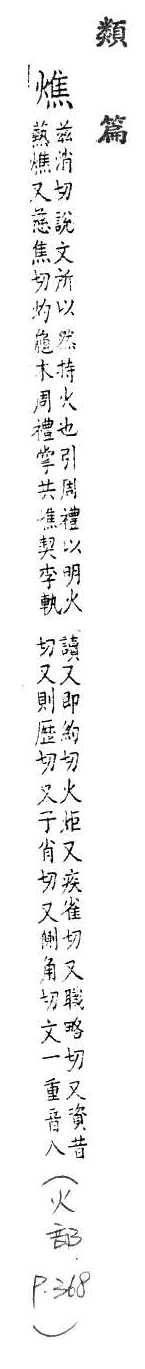 類篇
燋
茲消切說文所以然持火也引周禮以明火
爇燋又慈焦切灼龜木周禮掌共燋契李軌
讀又即約切火炬又疾雀切又職略切又資昔
切又則歷切又子肖切又側角切文一重音八
(火部 P.368)